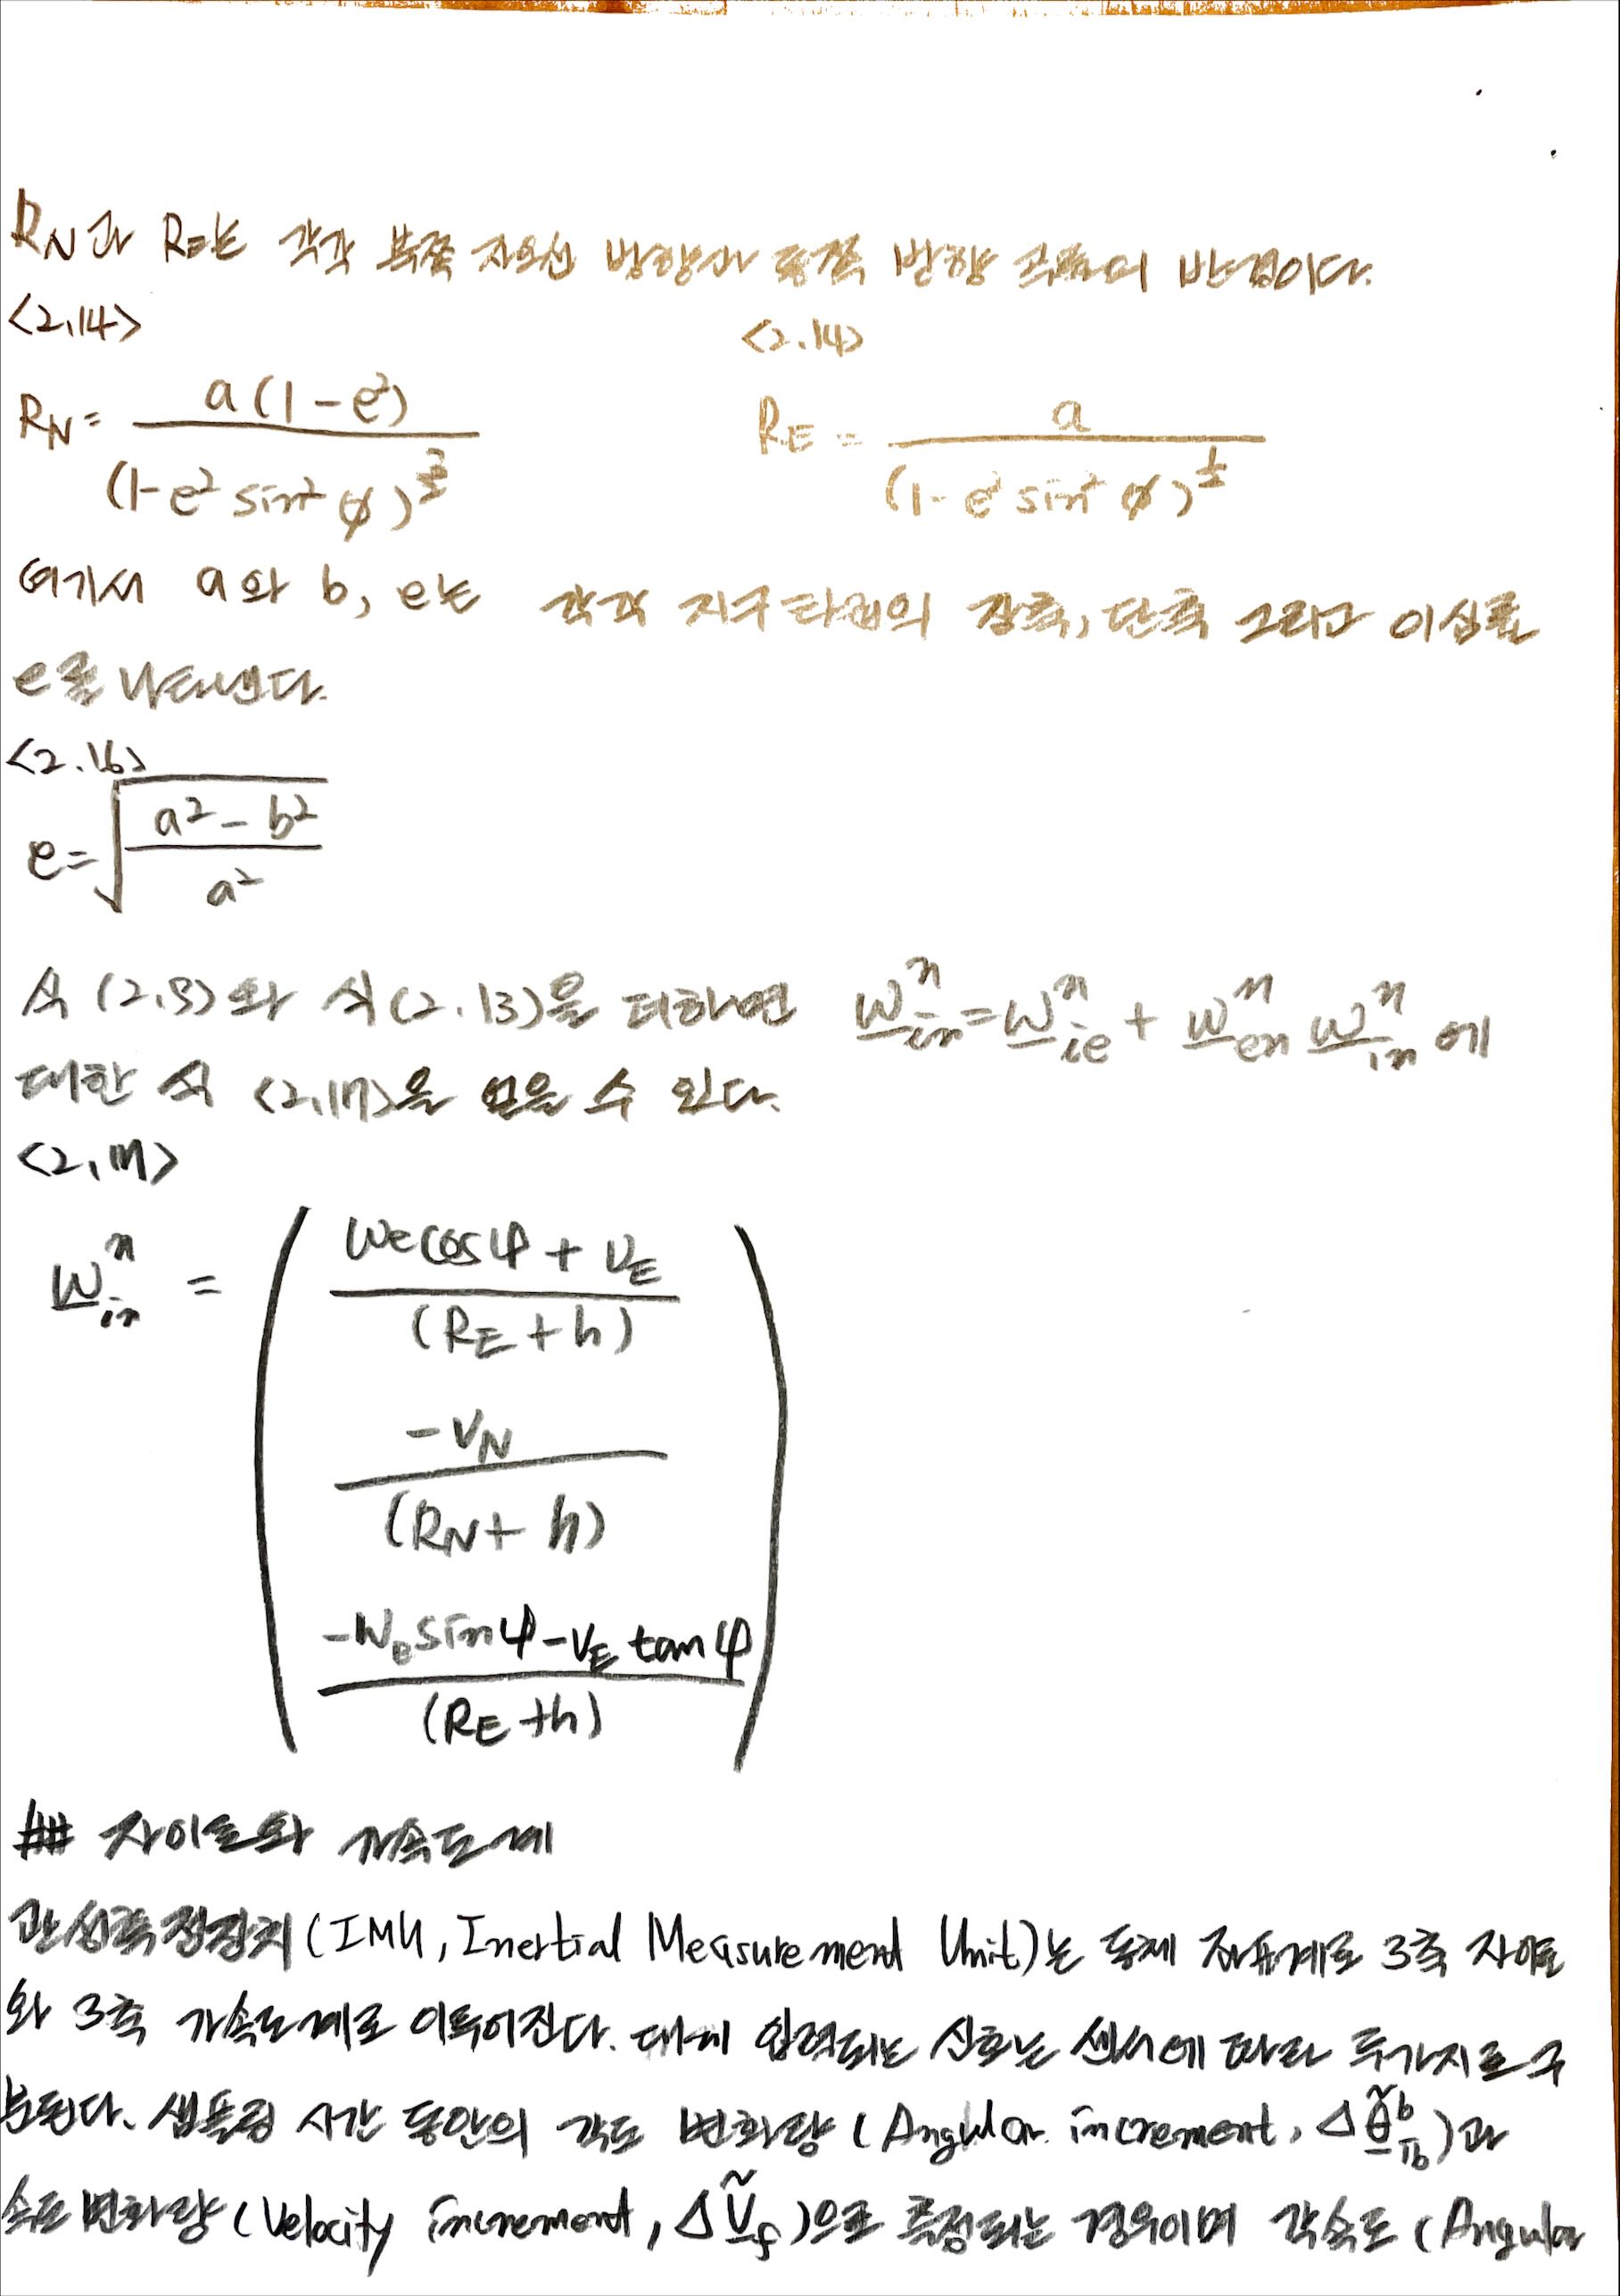 R_N과 R_E는 각각 북쪽 자오선 방향과 동쪽 방향 곡률의 반경이다.
<2.14> <2.14>
R_N = \frac{a(1-e^2)}{(1-e^2 sin^2 φ)^{\frac{3}{2}}} R_E = \frac{a}{(1-e^2 sin^2 φ)^{\frac{1}{2}}}
여기서 a와 b, e는 각각 지구 타원의 장축, 단축 그리고 이심률
e를 나타낸다.
<2.16>
e = \sqrt{\frac{a^2-b^2}{a^2}}
식 (2.9)와 식(2.13)을 더하면 \underline{w}_{in}^n = \underline{w}_{ie}^n + \underline{w}_{en}^n \underline{w}_{in}^n 에
대한 식 <2.17>을 얻을 수 있다.
<2.17>
\underline{w}_{in}^n = \begin{pmatrix} \frac{w_e cosφ + v_E}{(R_E+h)} \\ \frac{-v_N}{(R_N+h)} \\ \frac{-w_e sinφ - v_E tanφ}{(R_E+h)} \end{pmatrix}
## 자이로와 가속도계
관성측정장치(IMU, Inertial Measurement Unit)는 동체 좌표계로 3축 자이로
와 3축 가속도계로 이루어진다. 대게 입력되는 신호는 센서에 따라 두가지로 구
분된다. 샘플링 시간 동안의 각도 변화량 (Angular increment, Δ\underline{\tilde{θ}}_{ib}^b)과
속도 변화량(Velocity increment, Δ\underline{\tilde{v}}_f)으로 측정되는 경우이며 각속도 (Angular